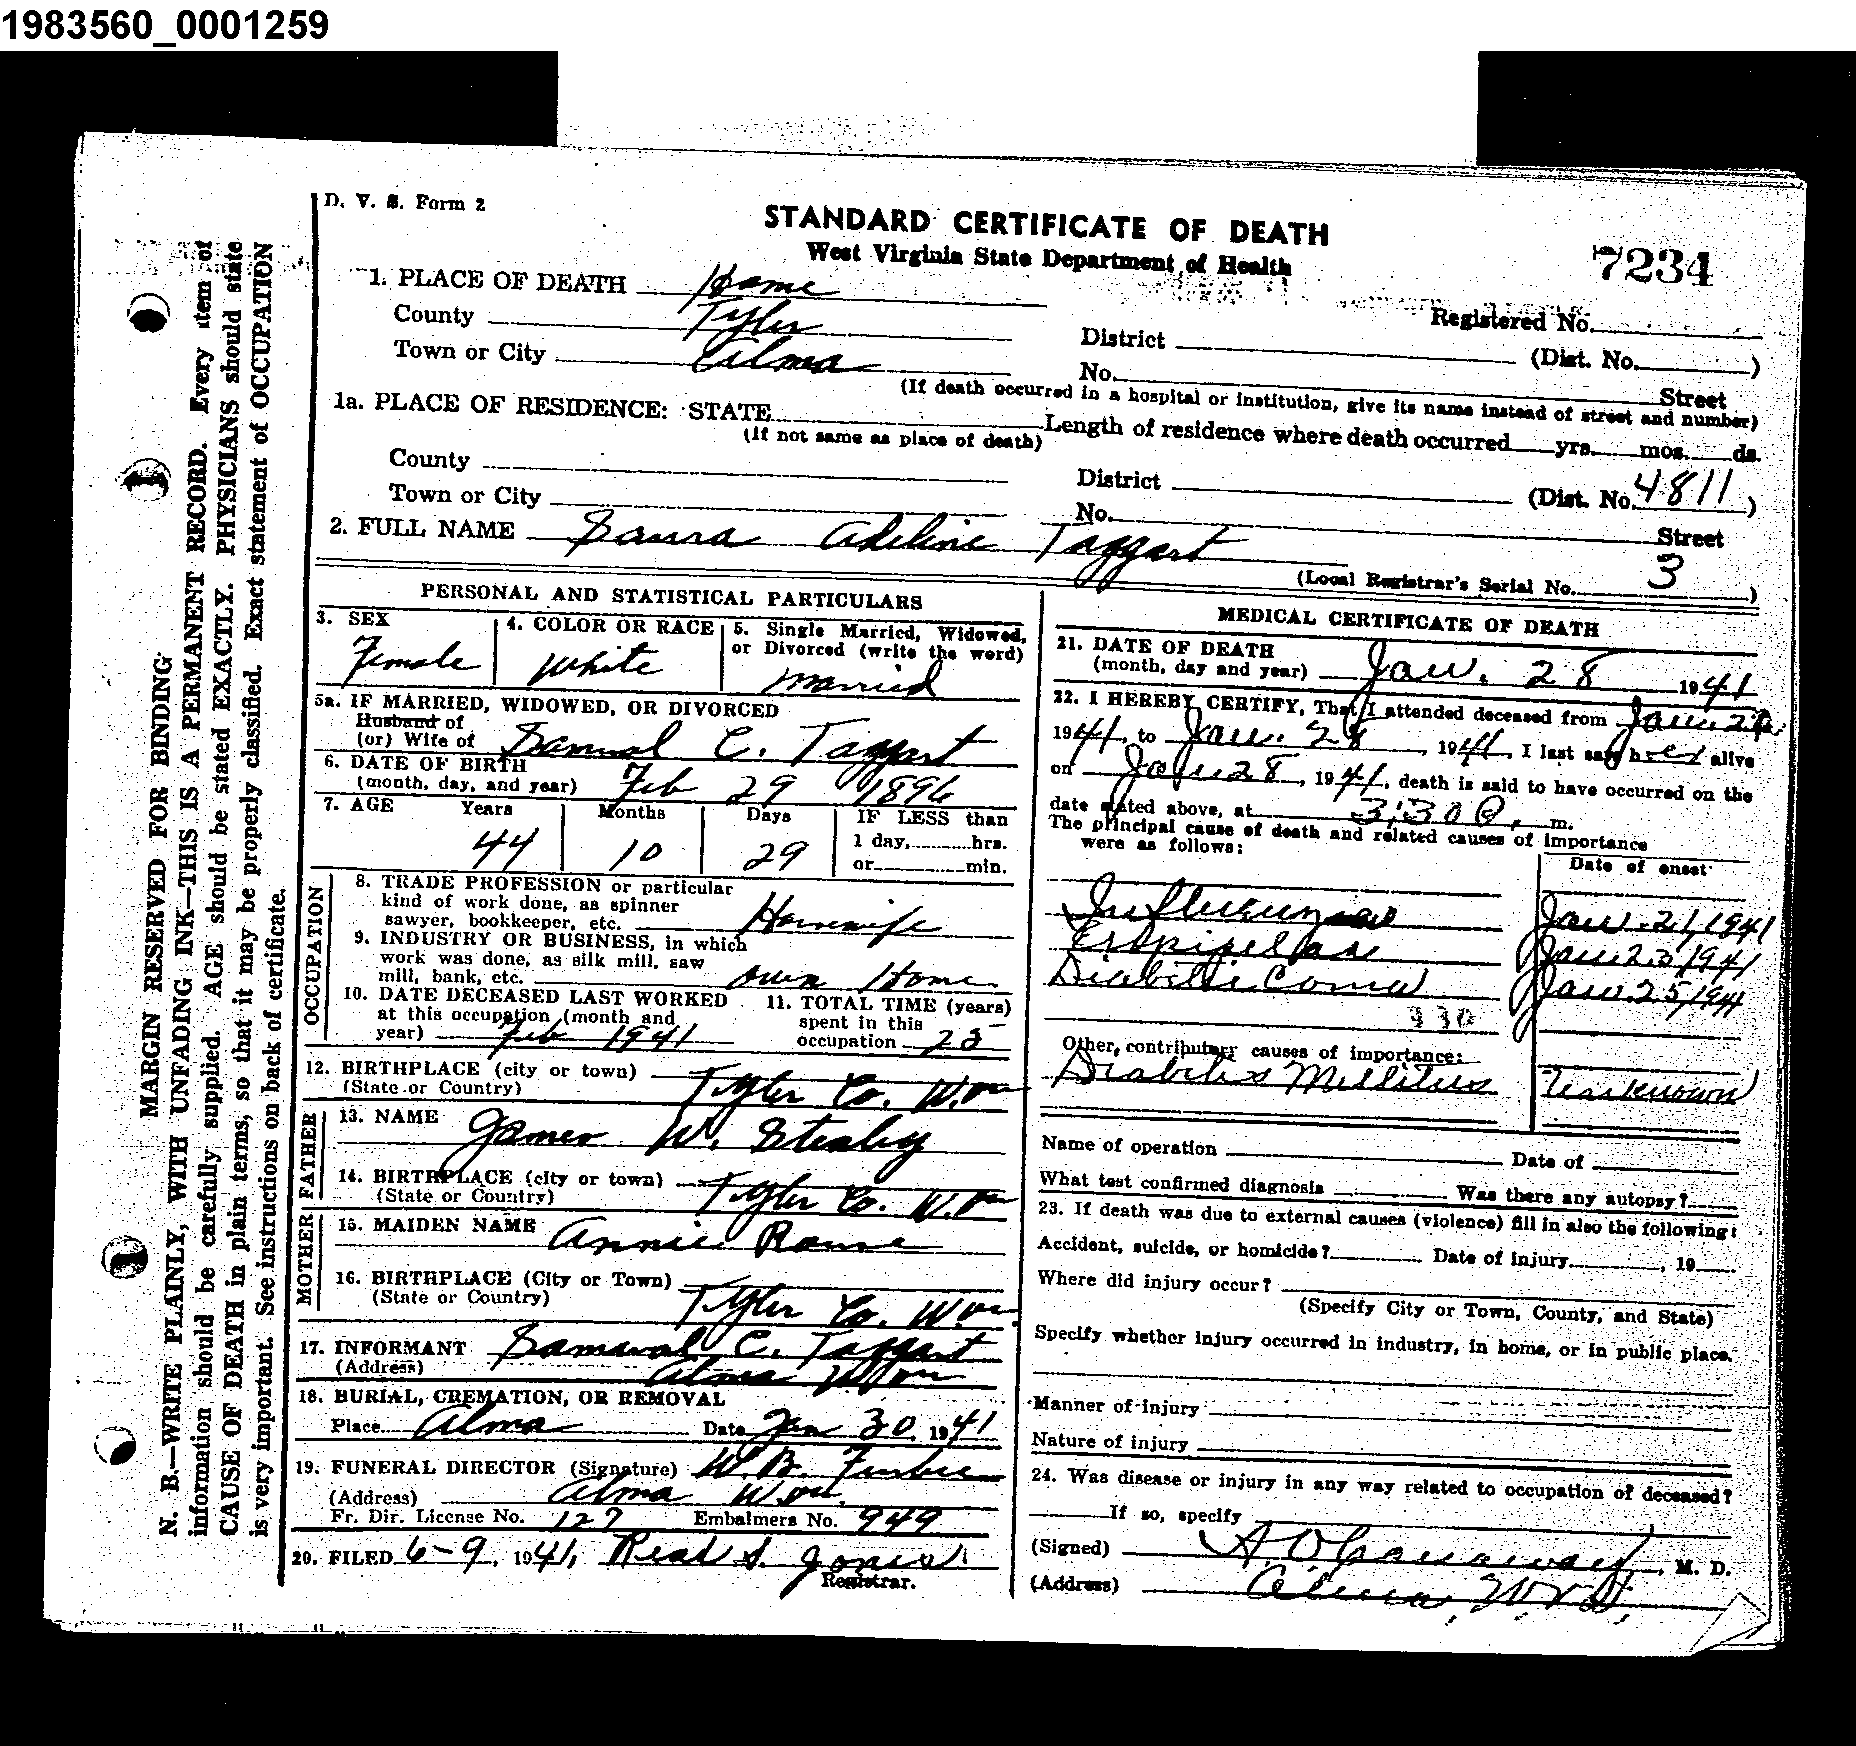 1983560_0001259
D. V. S. Form 2
STANDARD CERTIFICATE OF DEATH
West Virginia State Department of Health
7234
1. PLACE OF DEATH Home
Registered No.
County Tyler
District (Dist. No. )
Town or City Alma
No. Street
(If death occurred in a hospital or institution, give its name instead of street and number)
1a. PLACE OF RESIDENCE: STATE
(If not same as place of death)
Length of residence where death occurred yrs. mos. ds.
County
District (Dist. No. 4811 )
Town or City
No. Street
2. FULL NAME Laura Adeline Taggart
(Local Registrar's Serial No. 3 )
PERSONAL AND STATISTICAL PARTICULARS
3. SEX
Female
4. COLOR OR RACE
White
5. Single Married, Widowed,
or Divorced (write the word)
Married
5a. IF MARRIED, WIDOWED, OR DIVORCED
Husband of
(or) Wife of Samuel C. Taggart
6. DATE OF BIRTH
(month, day, and year) Feb 29 1896
7. AGE Years Months Days IF LESS than
44 10 29 1 day, hrs.
or min.
OCCUPATION
8. TRADE PROFESSION or particular
kind of work done, as spinner
sawyer, bookkeeper, etc. Housewife
9. INDUSTRY OR BUSINESS, in which
work was done, as silk mill, saw
mill, bank, etc. own Home
10. DATE DECEASED LAST WORKED
at this occupation (month and
year) Feb 1941
11. TOTAL TIME (years)
spent in this
occupation 25
12. BIRTHPLACE (city or town)
(State or Country) Tyler Co. W. Va
FATHER
13. NAME James W. Stealey
14. BIRTHPLACE (city or town)
(State or Country) Tyler Co. W. Va
MOTHER
15. MAIDEN NAME Annie
16. BIRTHPLACE (City or Town)
(State or Country) Tyler Co. W Va.
17. INFORMANT Samuel C. Taggart
(Address) Alma W Va
18. BURIAL, CREMATION, OR REMOVAL
Place Alma Date Jan 30, 1941
19. FUNERAL DIRECTOR (Signature) W. B.
(Address) Alma W. Va.
Fr. Dir. License No. 127 Embalmers No. 949
20. FILED 6-9, 1941, Read S. Jones
Registrar.
MEDICAL CERTIFICATE OF DEATH
21. DATE OF DEATH
(month, day and year) Jan. 28 1941
22. I HEREBY CERTIFY, That I attended deceased from Jan.
1941, to Jan. 28, 1941, I last saw her alive
on Jan. 28, 1941, death is said to have occurred on the
date stated above, at 3:30 m.
The principal cause of death and related causes of importance
were as follows:
Date of onset
Influenza Jan. 21, 1941
Erysipelas Jan. 23 1941
Diabetic Coma Jan. 25, 1941
Other, contributory causes of importance:
Diabetes Mellitus Unknown
Name of operation Date of
What test confirmed diagnosis Was there any autopsy?
23. If death was due to external causes (violence) fill in also the following:
Accident, suicide, or homicide? Date of injury , 19
Where did injury occur?
(Specify City or Town, County, and State)
Specify whether injury occurred in industry, in home, or in public place.
Manner of injury
Nature of injury
24. Was disease or injury in any way related to occupation of deceased?
If so, specify
(Signed) M. D.
(Address) Alma, W. Va.
MARGIN RESERVED FOR BINDING
N. B.—WRITE PLAINLY, WITH UNFADING INK—THIS IS A PERMANENT RECORD. Every item of
information should be carefully supplied. AGE should be stated EXACTLY. PHYSICIANS should state
CAUSE OF DEATH in plain terms, so that it may be properly classified. Exact statement of OCCUPATION
is very important. See instructions on back of certificate.